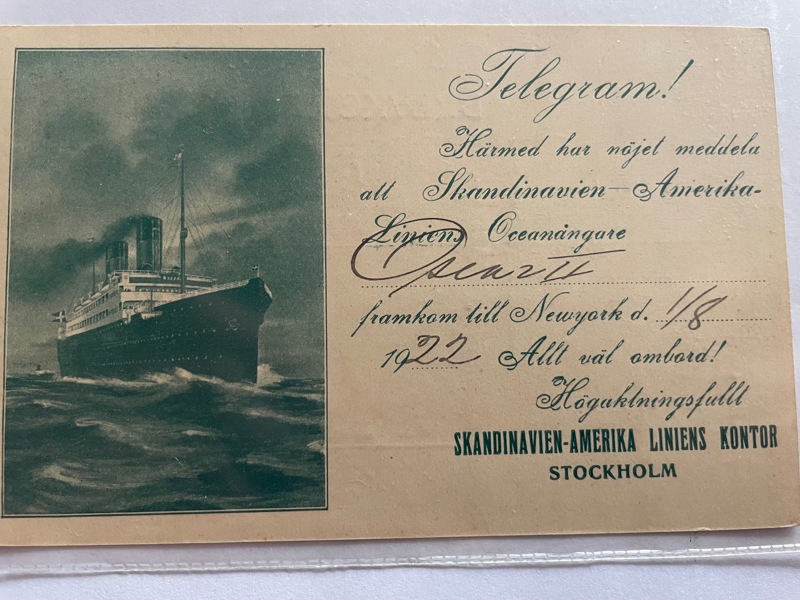 Telegram!
Härmed har nöjet meddela
att Skandinavien-Amerika-
Liniens Oceanångare
Oscar II
framkom till Newyork d. 1/8
1922 Allt väl ombord!
Högaktningsfullt
SKANDINAVIEN-AMERIKA LINIENS KONTOR
STOCKHOLM